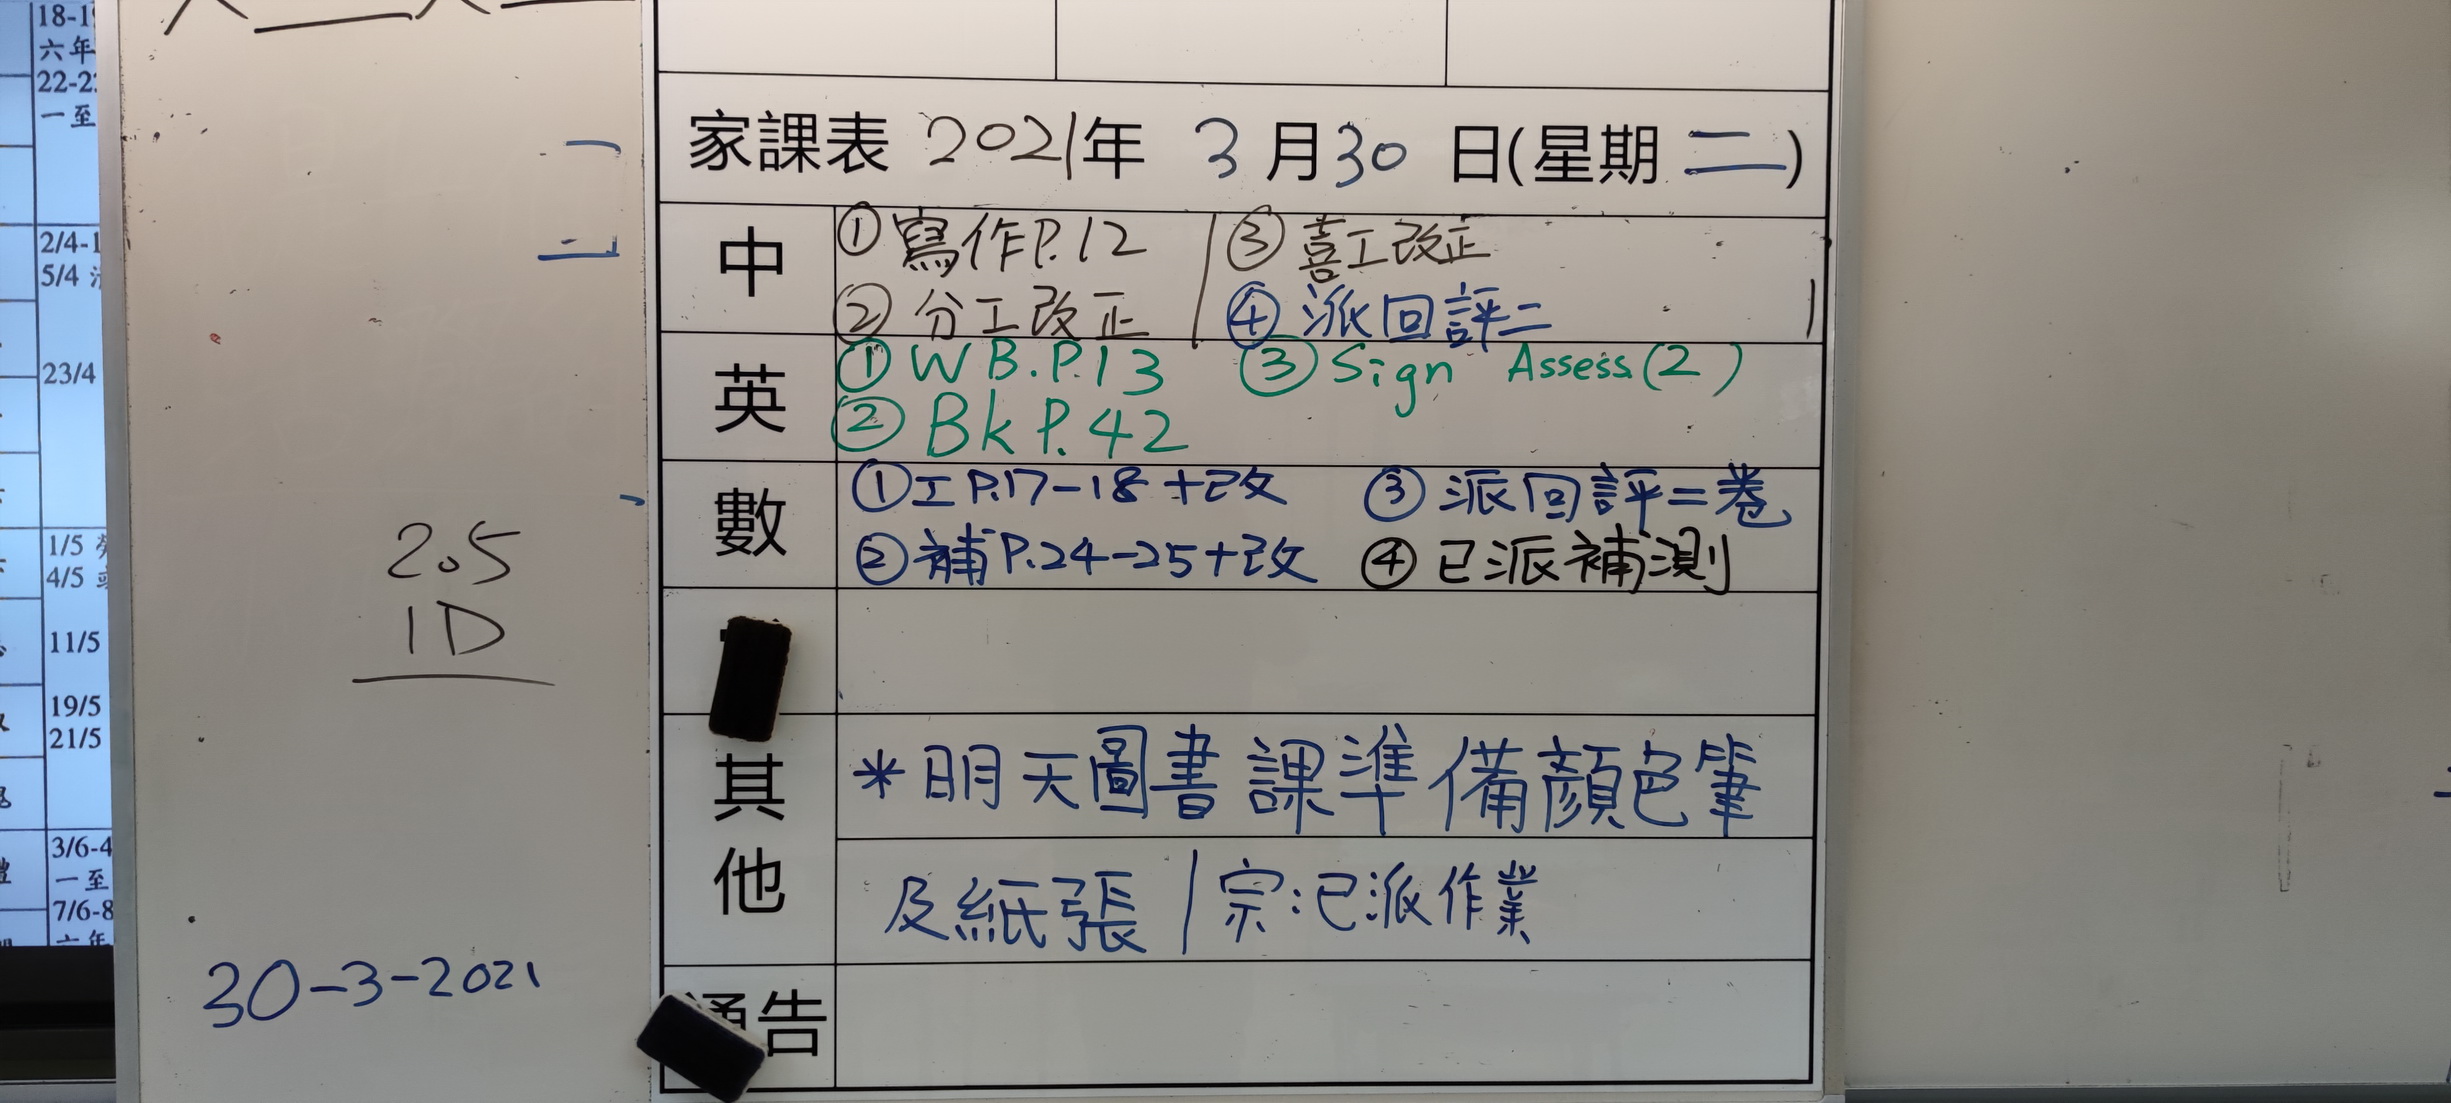 18-1
六年
22-2
一至
2/4-1
5/4
23/4
1/5
4/5
11/5
19/5
21/5
3/6-4
一至
7/6-8
六年
2.5
1D
30-3-2021
家課表 2021年 3月30日(星期二)
中
①寫作P.12 ③喜工改正
②分工改正 ④派回評二
英
①WB.P.13 ③Sign Assess(2)
②Bk P.42
數
①工P.17-18+改 ③派回評二卷
②補P.24-25+改 ④已派補測
其他
*明天圖書課準備顏色筆
及紙張/宗:已派作業
通告